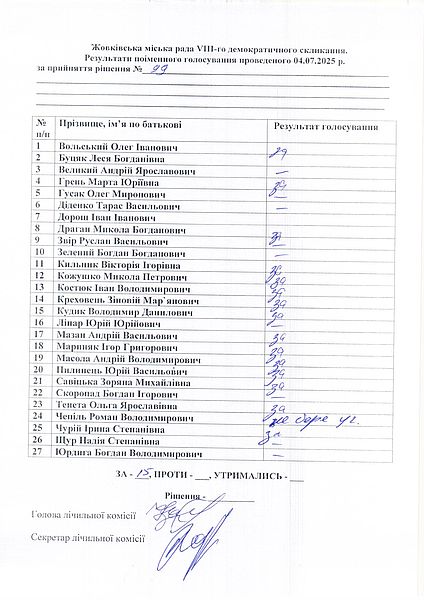 Жовківська міська рада VIII-го демократичного скликання.
Результати поіменного голосування проведеного 04.07.2025 р.
за прийняття рішення № 99
№ п/п Прізвище, ім’я по батькові Результат голосування
1 Вольський Олег Іванович за
2 Буцяк Леся Богданівна
3 Великий Андрій Ярославович —
4 Грень Марта Юріївна за
5 Гусак Олег Миронович —
6 Діденко Тарас Васильович —
7 Дорош Іван Іванович
8 Драган Микола Богданович за
9 Звір Руслан Васильович —
10 Зелений Богдан Богданович —
11 Кильник Вікторія Ігорівна за
12 Кожушко Микола Петрович за
13 Костюк Іван Володимирович за
14 Креховець Зіновій Мар`янович за
15 Кудик Володимир Данилович за
16 Лінар Юрій Юрійович —
17 Мазан Андрій Васильович за
18 Мариняк Ігор Григорович за
19 Масола Андрій Володимирович за
20 Пилипець Юрій Васильович за
21 Савіцька Зоряна Михайлівна за
22 Скоропад Богдан Ігорович —
23 Тепета Ольга Ярославівна за
24 Чепіль Роман Володимирович не бере уч.
25 Чурій Ірина Степанівна за
26 Щур Надія Степанівна —
27 Юрдига Богдан Володимирович —
ЗА - 15, ПРОТИ - ___, УТРИМАЛИСЬ - ___
Рішення -
Голова лічильної комісії
Секретар лічильної комісії